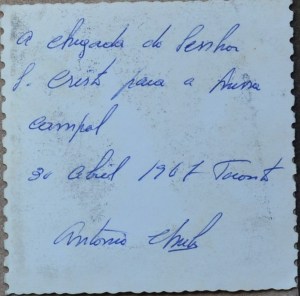 A chegada do Senhor
S. Cristo para a Missa
campal
30 abril 1967 Toronto
Antonio